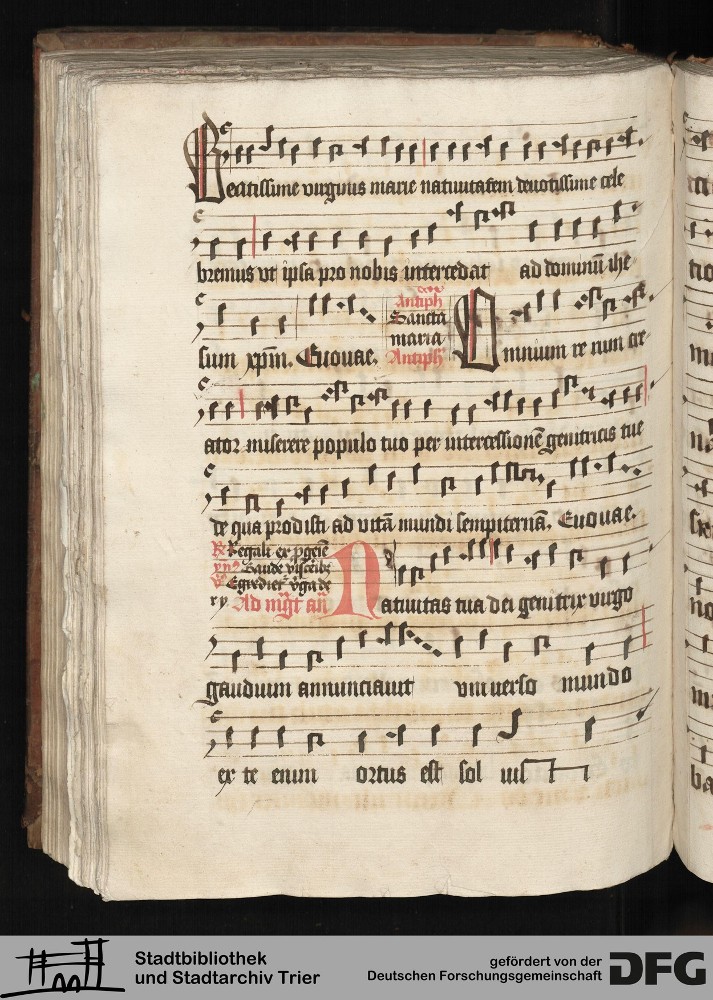 Beatissime virginis marie natiuitatem deuotissime cele
bremus vt ipsa pro nobis intercedat ad dominū ihe
sum xpm̄. Euouae. Antiph̄ Sancta maria Antiph̄ Omnium re rum cre
ator miserere populo tuo per intercessionē genitricis tue
de qua prodisti ad vitā mundi sempiternā. Euouae.
Regali ex ꝓgeīe
Gaude
Egredietᷣ v̓ga de
Ad mgt̄ an̄ Natiuitas tua dei genitrix virgo
gaudium annunciauit vniuerso mundo
ex te enim ortus est sol ius
Stadtbibliothek
und Stadtarchiv Trier
gefördert von der
Deutschen Forschungsgemeinschaft DFG